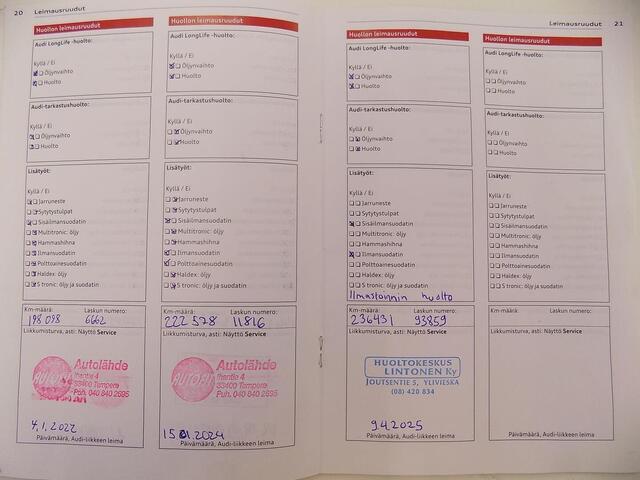 20 Leimausruudut
Huollon leimausruudut
Audi LongLife -huolto:
Kyllä / Ei
Öljynvaihto
Huolto
Audi-tarkastushuolto:
Kyllä / Ei
Öljynvaihto
Huolto
Lisätyöt:
Kyllä / Ei
Jarruneste
Sytytystulpat
Sisäilmansuodatin
Multitronic: öljy
Hammashihna
Ilmansuodatin
Polttoainesuodatin
Haldex: öljy
S tronic: öljy ja suodatin
Km-määrä: Laskun numero:
198 098 6662
Liikkumisturva, asti: Näyttö Service
Autolähde
Ihantie 4
33400 Tampere
Puh. 040 840 2695
4.1.2022
Päivämäärä, Audi-liikkeen leima
Huollon leimausruudut
Audi LongLife -huolto:
Kyllä / Ei
Öljynvaihto
Huolto
Audi-tarkastushuolto:
Kyllä / Ei
Öljynvaihto
Huolto
Lisätyöt:
Kyllä / Ei
Jarruneste
Sytytystulpat
Sisäilmansuodatin
Multitronic: öljy
Hammashihna
Ilmansuodatin
Polttoainesuodatin
Haldex: öljy
S tronic: öljy ja suodatin
Km-määrä: Laskun numero:
222 578 11816
Liikkumisturva, asti: Näyttö Service
Autolähde
Ihantie 4
33400 Tampere
Puh. 040 840 2695
15.01.2024
Päivämäärä, Audi-liikkeen leima
Leimausruudut 21
Huollon leimausruudut
Audi LongLife -huolto:
Kyllä / Ei
Öljynvaihto
Huolto
Audi-tarkastushuolto:
Kyllä / Ei
Öljynvaihto
Huolto
Lisätyöt:
Kyllä / Ei
Jarruneste
Sytytystulpat
Sisäilmansuodatin
Multitronic: öljy
Hammashihna
Ilmansuodatin
Polttoainesuodatin
Haldex: öljy
S tronic: öljy ja suodatin
Ilmastoinnin huolto
Km-määrä: Laskun numero:
236431 93859
Liikkumisturva, asti: Näyttö Service
HUOLTOKESKUS
LINTONEN Ky
JOUTSENTIE 5, YLIVIESKA
(08) 420 834
9.4.2025
Päivämäärä, Audi-liikkeen leima
Huollon leimausruudut
Audi LongLife -huolto:
Kyllä / Ei
Öljynvaihto
Huolto
Audi-tarkastushuolto:
Kyllä / Ei
Öljynvaihto
Huolto
Lisätyöt:
Kyllä / Ei
Jarruneste
Sytytystulpat
Sisäilmansuodatin
Multitronic: öljy
Hammashihna
Ilmansuodatin
Polttoainesuodatin
Haldex: öljy
S tronic: öljy ja suodatin
Km-määrä: Laskun numero:
Liikkumisturva, asti: Näyttö Service
Päivämäärä, Audi-liikkeen leima